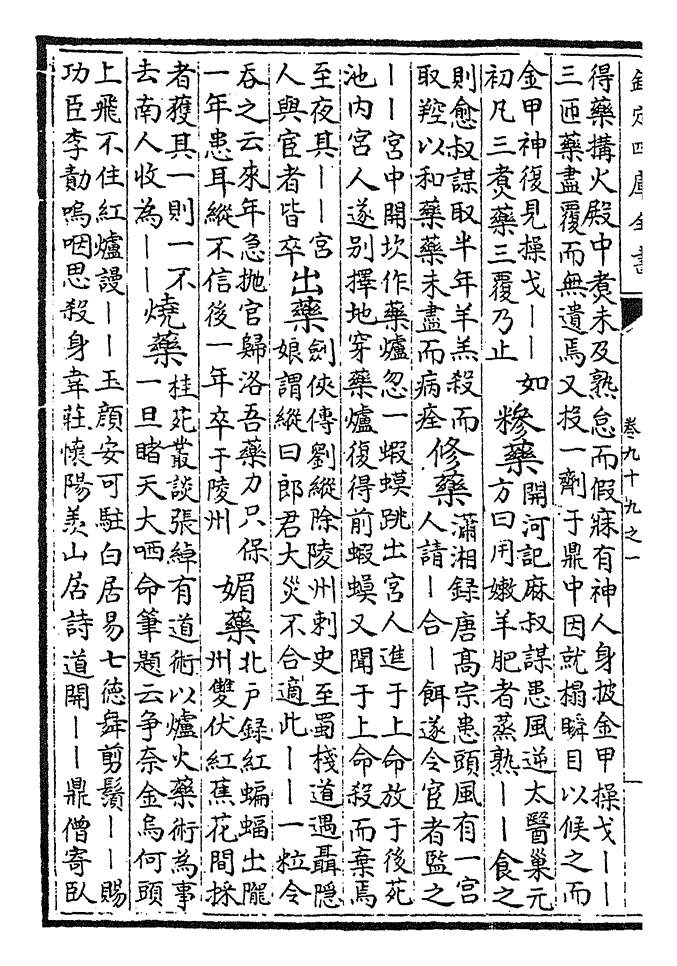 欽定四庫全書
卷九十九之一
得藥搆火殿中煑未及熟怠而假寐有神人身披金甲操戈丨丨
三匝藥盡覆而無遺焉又投一劑于鼎中因就榻瞬目以候之而
金甲神復見操戈丨丨如
初凡三煑藥三覆乃止
糝藥
開河記麻叔謀患風逆太醫巢元
方曰用嫩羊肥者蒸熟丨丨食之
則愈叔謀取半年羊羔殺而
取羫以和藥藥未盡而病痊
修藥
瀟湘録唐髙宗患頭風有一宮
人請丨合丨餌遂令宦者監之
丨丨宮中開坎作藥爐忽一蝦蟆跳出宮人進于上命放于後苑
池内宮人遂别擇地穿藥爐復得前蝦蟆又聞于上命殺而棄焉
至夜其丨丨宮
人與宦者皆卒
出藥
劍俠傳劉縱除陵州刺史至蜀棧道遇聶隱
娘謂縱曰郎君大災不合適此丨丨一粒令
吞之云來年急抛官歸洛吾藥力只保
一年患耳縱不信後一年卒于陵州
媚藥
北户録紅蝙蝠出隴
州雙伏紅蕉花間採
者獲其一則一不
去南人收為丨丨
燒藥
桂苑叢談張綽有道術以爐火藥術為事
一旦睹天大哂命筆題云争奈金烏何頭
上飛不住紅爐謾丨丨玉顔安可駐白居易七德舞剪鬚丨丨賜
功臣李勣嗚咽思殺身韋莊懷陽羡山居詩道開丨丨鼎僧寄臥